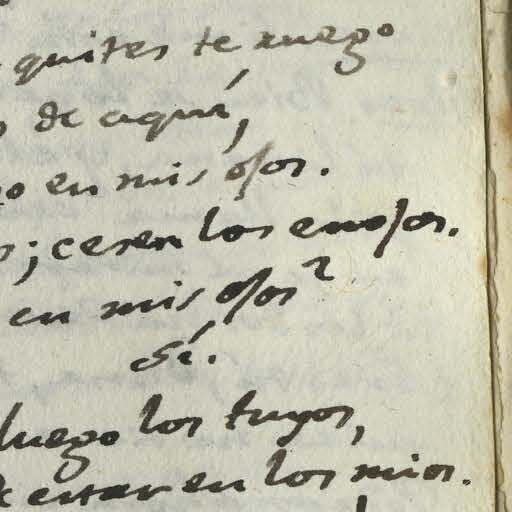 quites te ruego
de aquí,
en mis ojos.
; cesen los enojos.
en mis ojos?
Sí.
luego los tuyos,
estar en los mios.